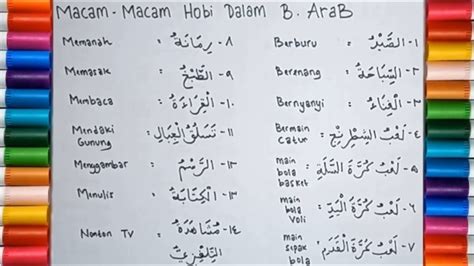 Macam - Macam Hobi Dalam B. AraB
Memanah : ٨- رِمَايَةٌ
Memasak : ٩- الطَّبْخُ
Membaca : ١٠- الْقِرَاءَةُ
Mendaki
Gunung : ١١- تَسَلُّقُ الْجِبَالِ
Menggambar : ١٢- الرَّسْمُ
Menulis : ١٣- الْكِتَابَةُ
Nonton TV : ١٤- مُشَاهَدَةُ
التِّلْفِزِيِّ
Berburu : ١- الصَّيْدُ
Berenang : ٢- السِّبَاحَةُ
Bernyanyi : ٣- الْغِنَاءُ
Bermain
Catur : ٤- لَعْبُ الشِّطْرِنْجِ
main
bola
basket : ٥- لَعْبُ كُرَةَ السَّلَّةِ
main
bola
Voli : ٦- لَعْبُ كُرَةَ الْيَدِ
main
sepak
bola : ٧- لَعْبُ كُرَةَ الْقَدَمِ